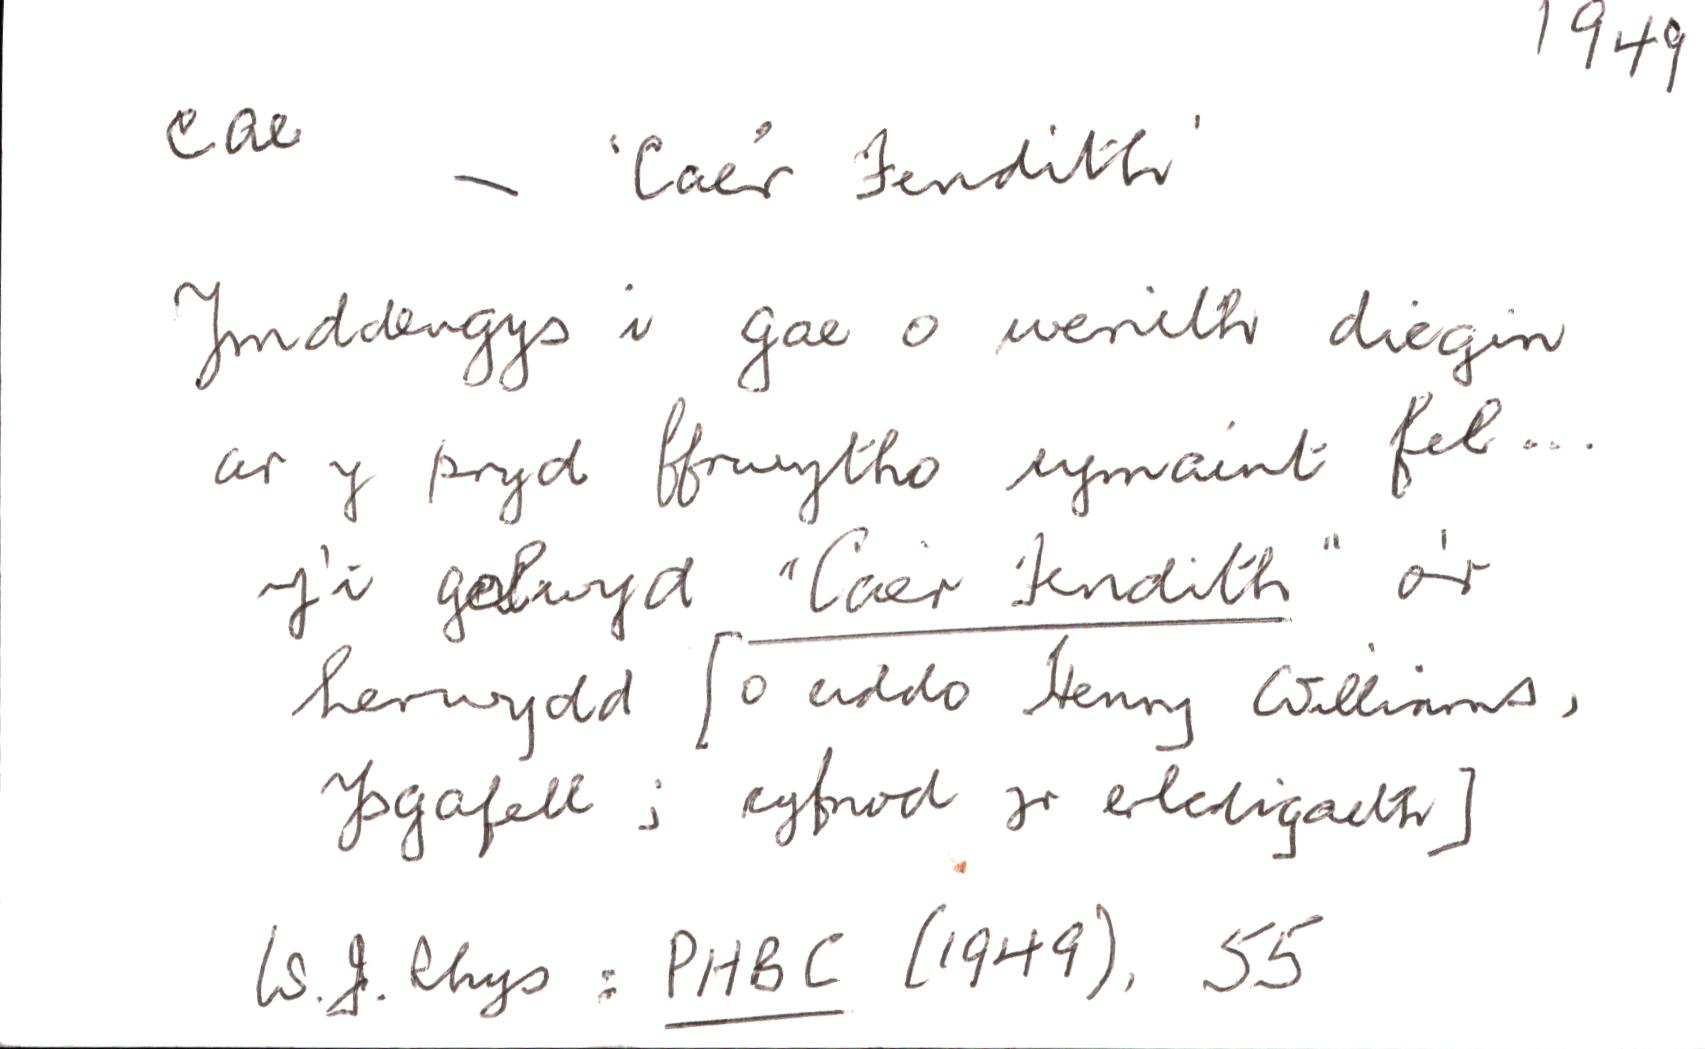 1949
cae
— 'Cae'r Fendith'
Ymddengys i gae o wenith diegin
ar y pryd ffrwytho cymaint fel ...
y'i galwyd "Cae'r Fendith" o'r
herwydd [o eiddo Henry Williams,
Ysgafell; cyfnod yr erledigaeth]
W.J. Rhys : PHBC (1949), 55